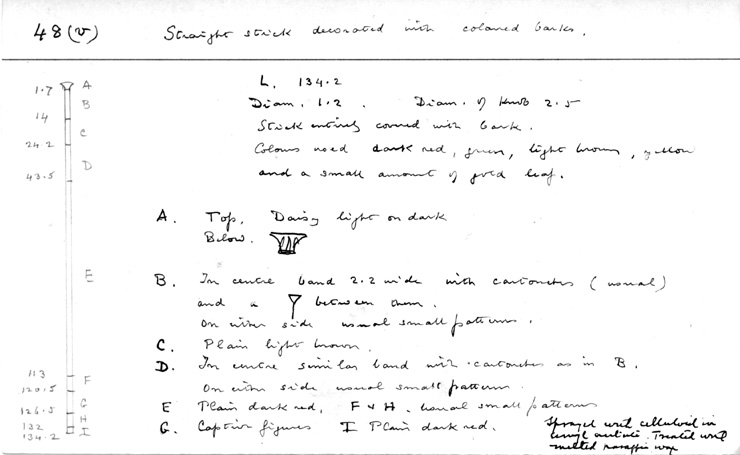 48 (v) Straight stick decorated with coloured barks.
L. 134.2
Diam. 1.2. Diam. of Knob 2.5
Stick entirely covered with bark.
Colours used dark red, green, light brown, yellow
and a small amount of gold leaf.
1.7 A
B
14
C
24.2
D
43.5
E
113
F
120.5
G
126.5
H
132
I
134.2
A. Top, Daisy light on dark
Below.
B. In centre band 2.2 wide with cartouches (usual)
and a between them.
On either side usual small patterns.
C. Plain light brown.
D. In centre similar band with cartouches as in B.
On either side usual small pattern.
E Plain dark red. F & H. Usual small patterns
G. Captive figures I Plain dark red.
Sprayed with celluloid in
amyl acetate. Treated with
melted paraffin wax